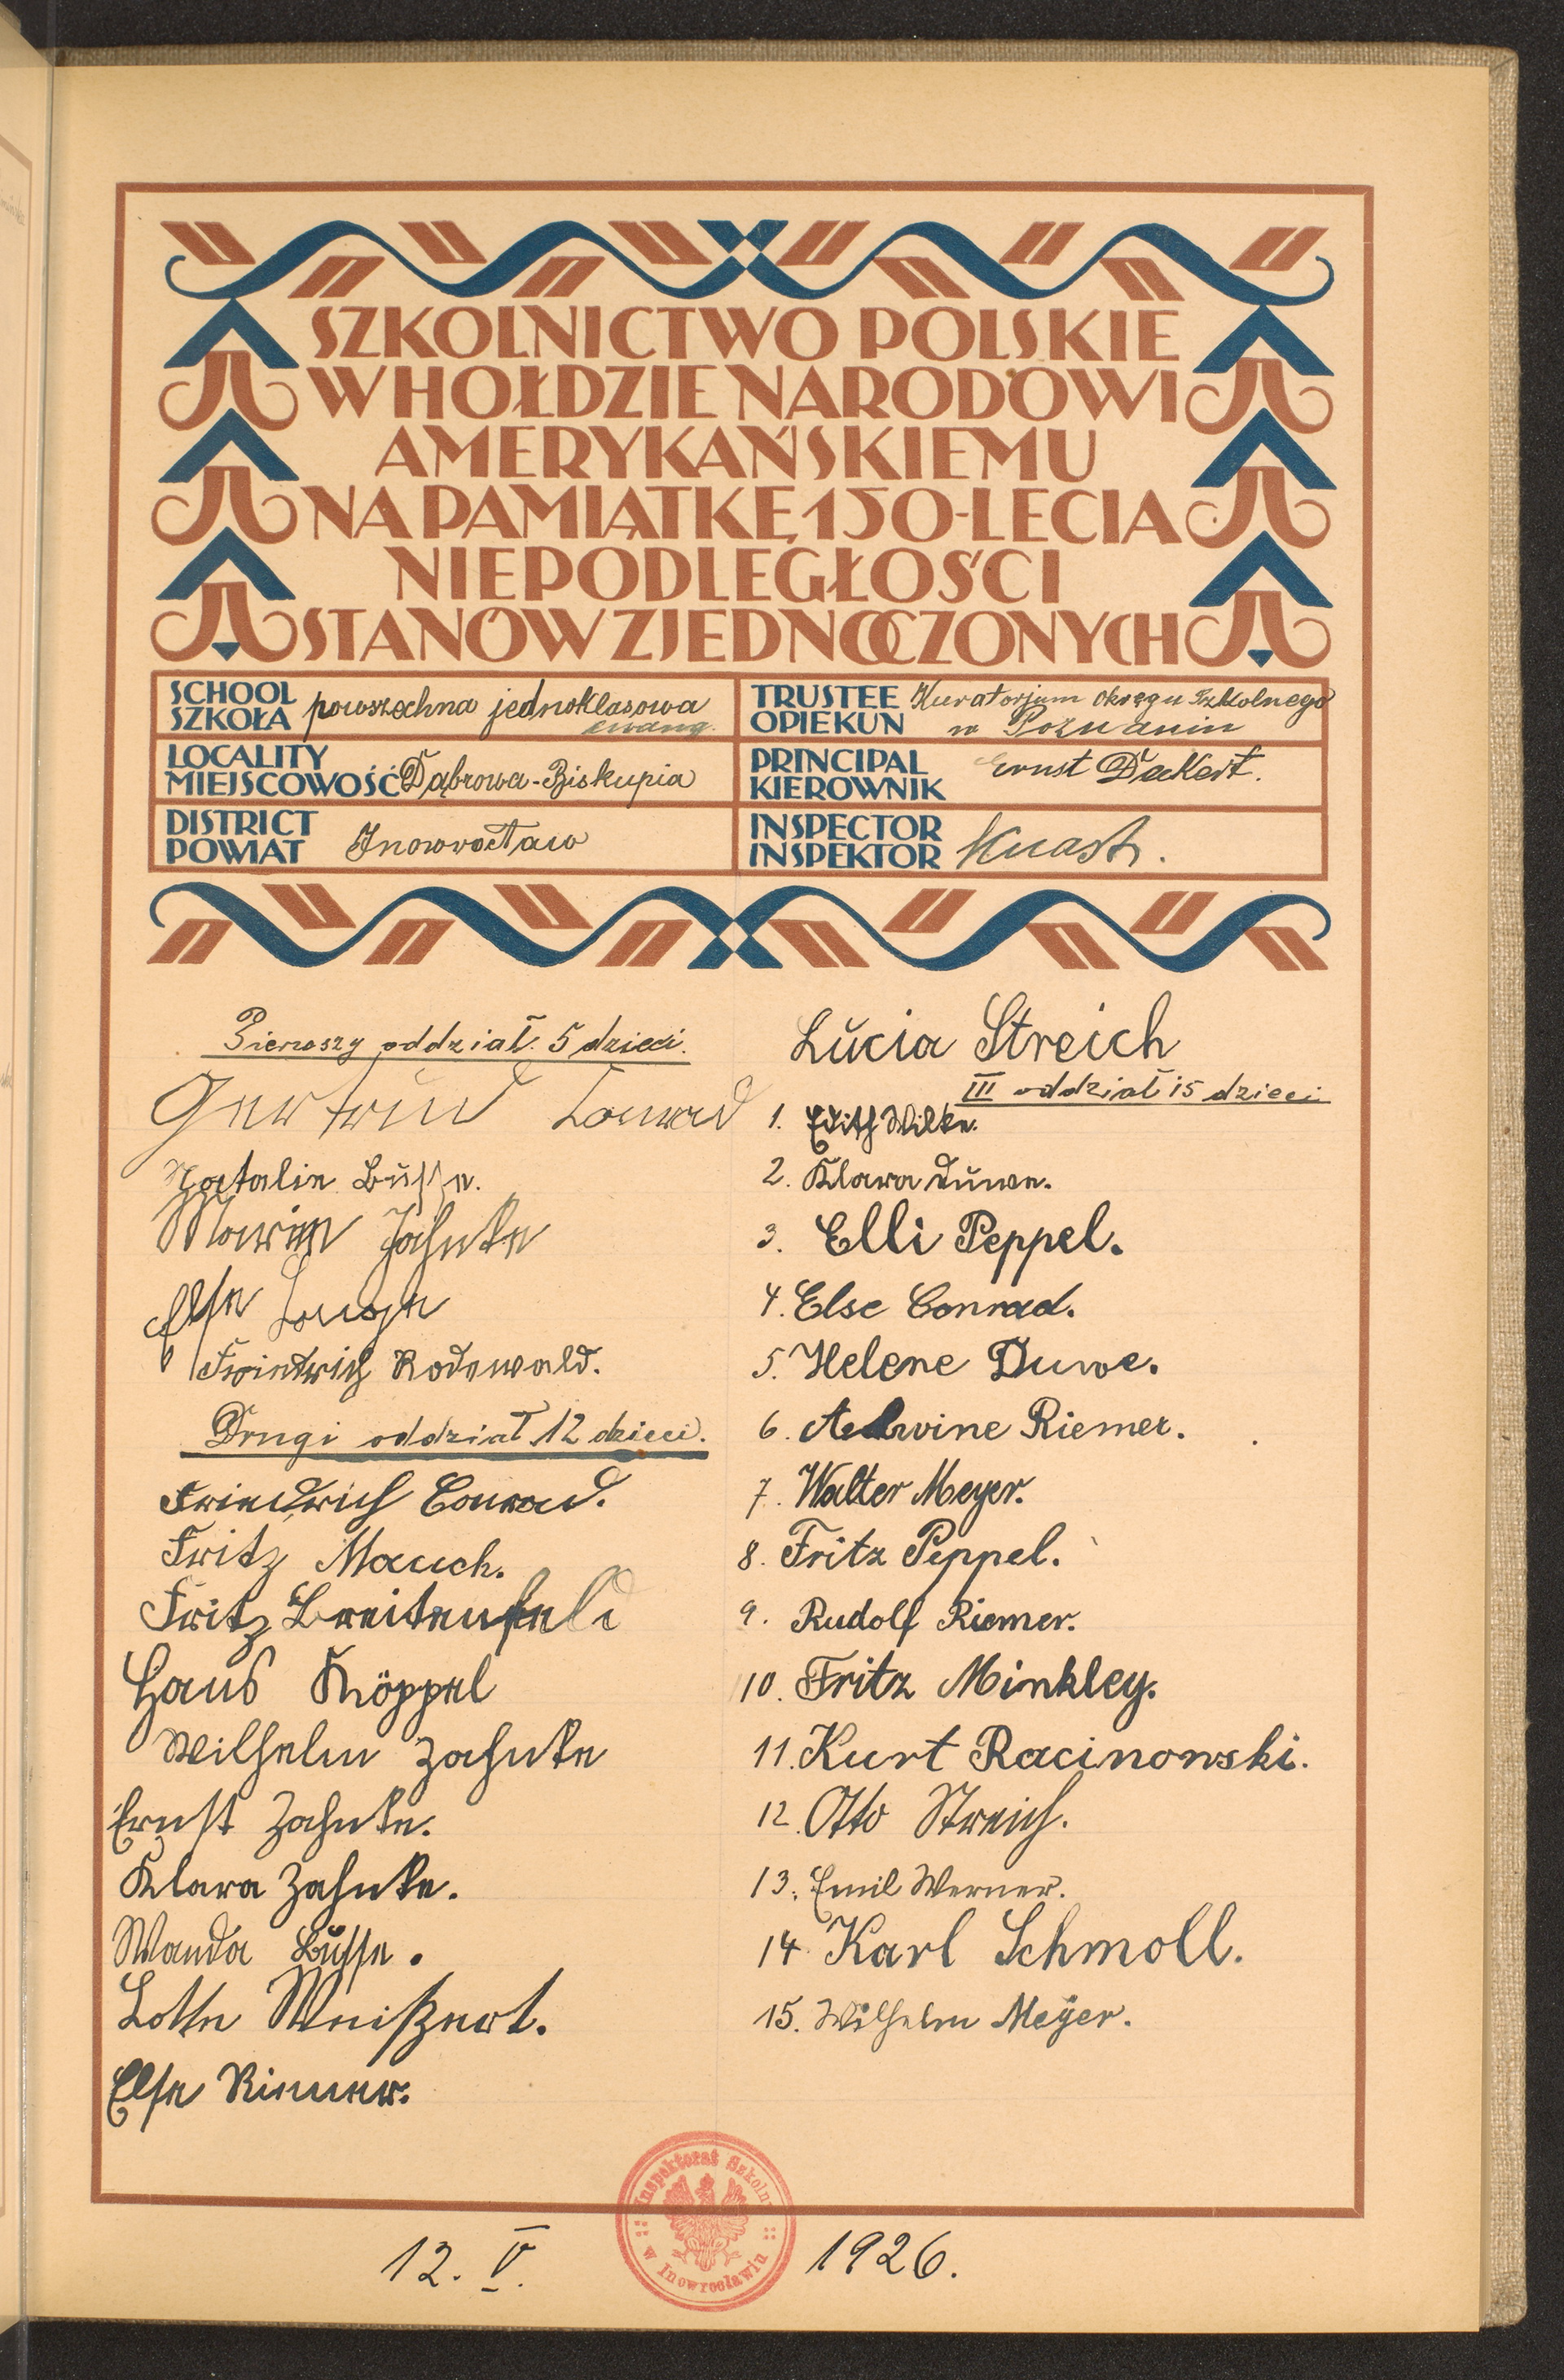 SZKOLNICTWO POLSKIE
W HOŁDZIE NARODOWI
AMERYKAŃSKIEMU
NA PAMIĄTKĘ 150-LECIA
NIEPODLEGŁOŚCI
STANÓW ZJEDNOCZONYCH
SCHOOL
SZKOŁA
powszechna jednoklasowa
ewang.
TRUSTEE
OPIEKUN
Kuratorjum Okręgu Szkolnego
w Poznaniu
LOCALITY
MIEJSCOWOŚĆ
Dąbrowa-Biskupia
PRINCIPAL
KIEROWNIK
Ernst Deckert.
DISTRICT
POWIAT
Inowrocław
INSPECTOR
INSPEKTOR
Knast.
Pierwszy oddział. 5 dzieci.
Gertrud Conrad
Natalie Busse.
Marie Jahnke
Else
Friedrich Rodewald.
Drugi oddział 12 dzieci.
Friedrich Conrad.
Fritz Mauch.
Fritz Breitenfeld
Hans Köppel
Wilhelm Jahnke
Ernst Jahnke.
Klara Jahnke.
Wanda Busse.
Lotte Weißert.
Else Riemer.
Lucia Streich
III oddział 15 dzieci
1. Edith Wilke.
2. Klara Duwe.
3. Elli Peppel.
4. Else Conrad.
5. Helene Duwe.
6. Riemer.
7. Walter Meyer.
8. Fritz Peppel.
9. Rudolf Riemer.
10. Fritz Minkley.
11. Kurt Racinowski.
12. Otto Streich.
13. Emil Werner.
14. Karl Schmoll.
15. Wilhelm Meyer.
Inspektorat Szkolny
w Inowrocławiu
12. V. 1926.